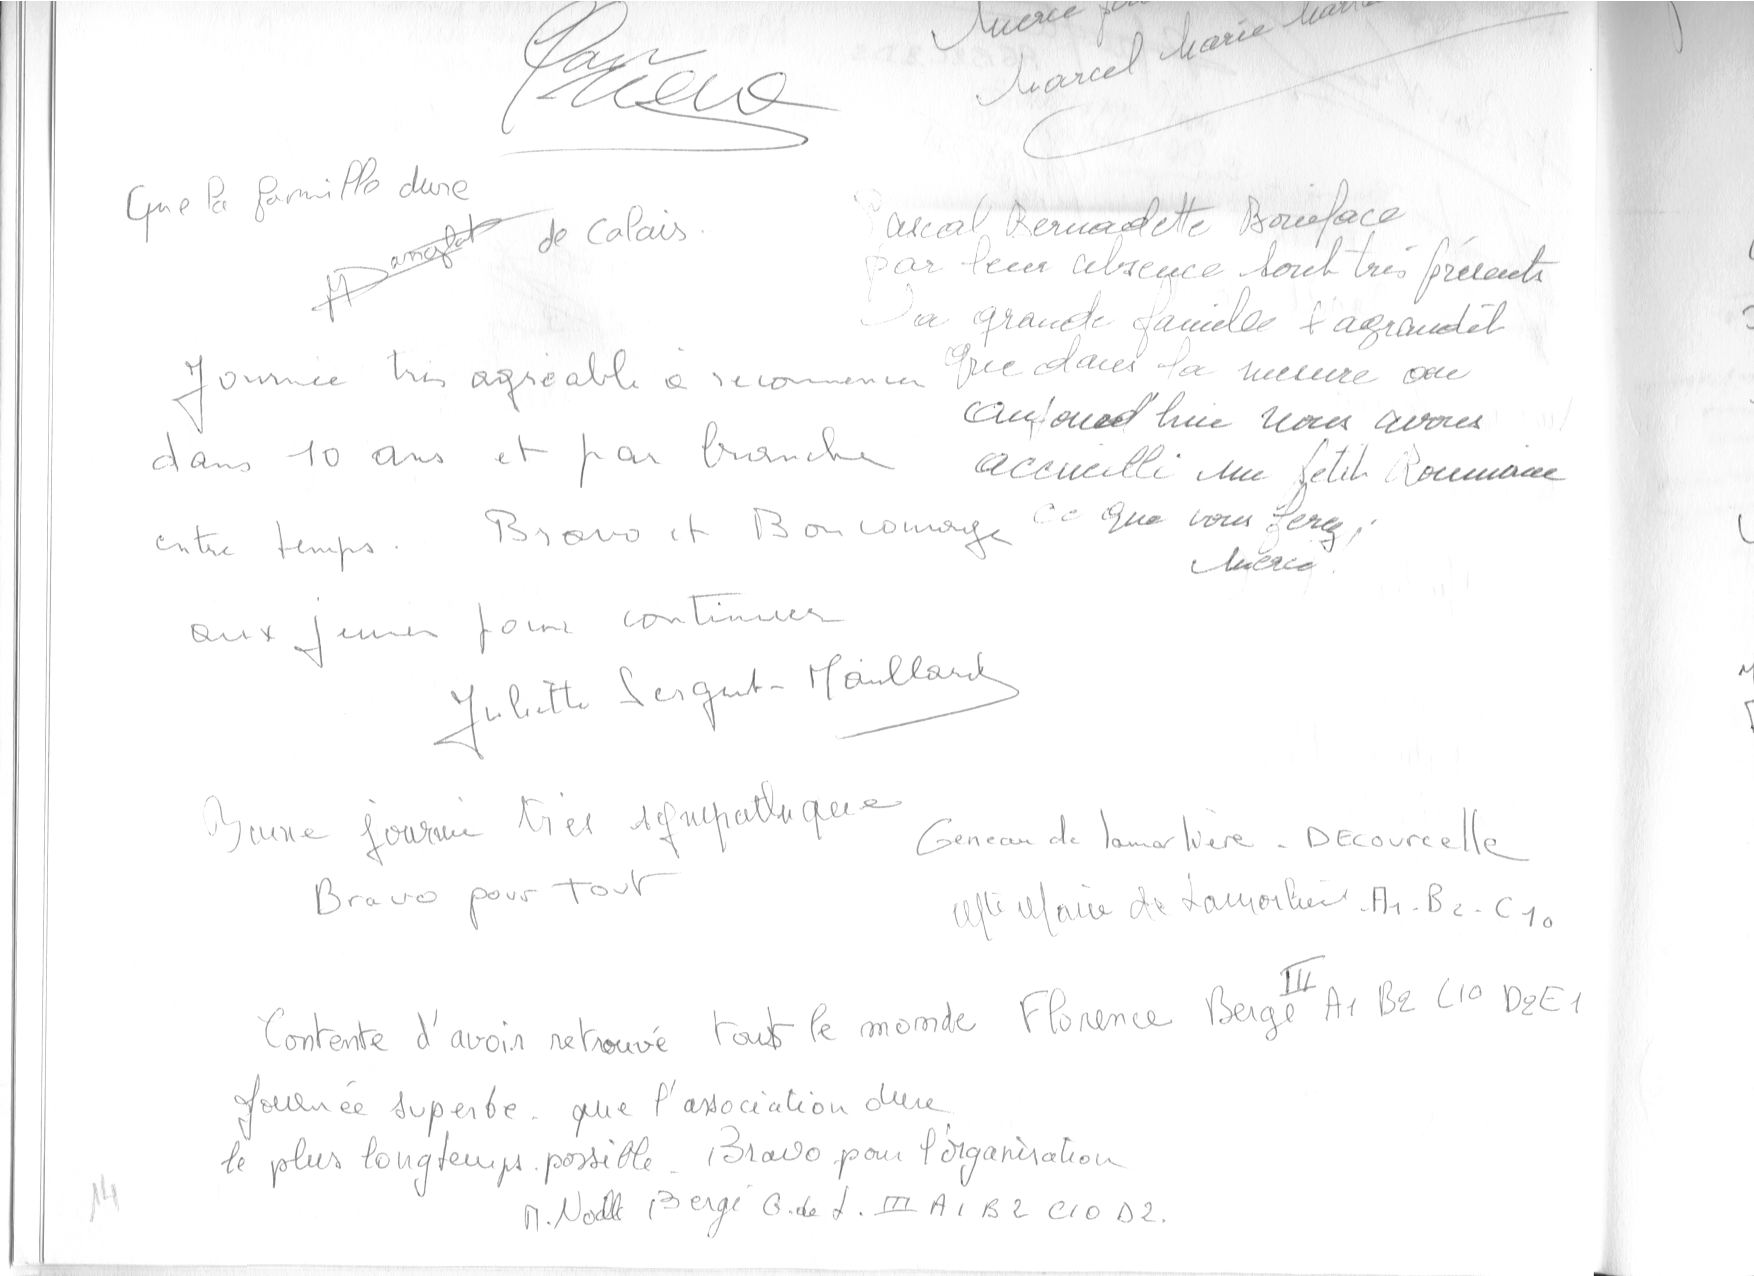 Merci
Marcel Marie
Que la famille dure
de Calais.
Pascal Bernadette Boniface
par leur absence sont très présents
La grande famille s'agrandit
que dans la mesure où
aujourd'hui nous avons
accueilli un petit Roumain
ce que vous ferez,
Merci.
Journée très agréable à recommencer
dans 10 ans et par branche
entre temps. Bravo et Bon courage
aux jeunes pour continuer
Juliette Sergent-Maillard
Bonne journée très sympathique
Bravo pour tout
Geneau de Lamarlière - DECOURCELLE
de Lamarlière. A1. B2. C10
Contente d'avoir retrouvé tout le monde Florence Bergé III A1 B2 C10 D2E1
Journée superbe. que l'association dure
le plus longtemps possible. Bravo pour l'organisation
M. Noelle Bergé G. de L. III A1 B2 C10 D2.
14